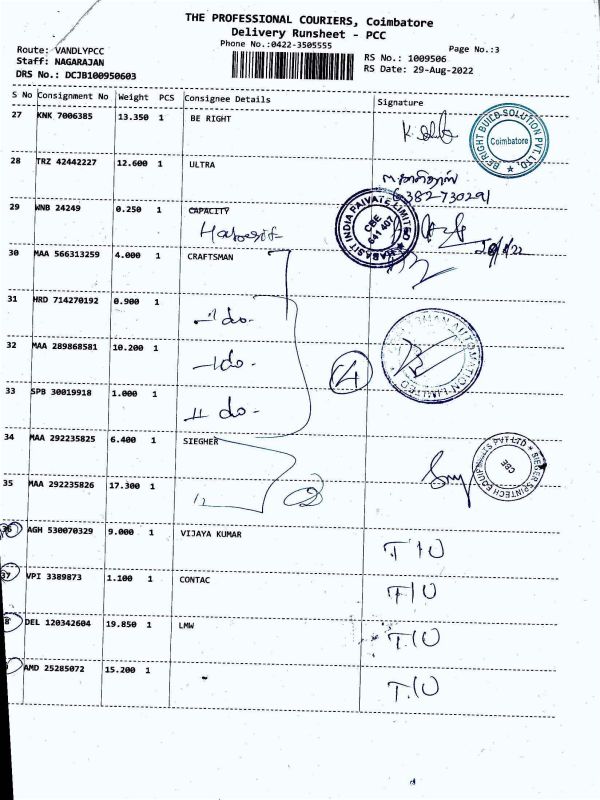 THE PROFESSIONAL COURIERS, Coimbatore
Delivery Runsheet - PCC
Phone No.:0422-3505555
Page No.:3
Route: VANDLYPCC
Staff: NAGARAJAN
DRS No.: DCJB100950603
RS No.: 1009506
RS Date: 29-Aug-2022
S No Consignment No Weight PCS Consignee Details Signature
27 KNK 7006385 13.350 1 BE RIGHT
BE RIGHT BUILD-SOLUTION PVT. LTD.
Coimbatore
28 TRZ 42442227 12.600 1 ULTRA
6382730291
29 WNB 24249 0.250 1 CAPACITY
Habasit
HABASIT INDIA PAIVATE LIMITED
CBE
641 407
30 MAA 566313259 4.000 1 CRAFTSMAN
31 HRD 714270192 0.900 1
do-
32 MAA 289868581 10.200 1
do-
4
AUTOMATION LIMITED
33 SPB 30019918 1.000 1
do-
34 MAA 292235825 6.400 1 SIEGHER
SIEGER SPINTECH EQUIPMENTS PVT LTD
CBE
35 MAA 292235826 17.300 1
2
36 AGH 530070329 9.000 1 VIJAYA KUMAR T/O
37 VPI 3389873 1.100 1 CONTAC T/O
8 DEL 120342604 19.850 1 LMW T/O
AMD 25285072 15.200 1 T/O